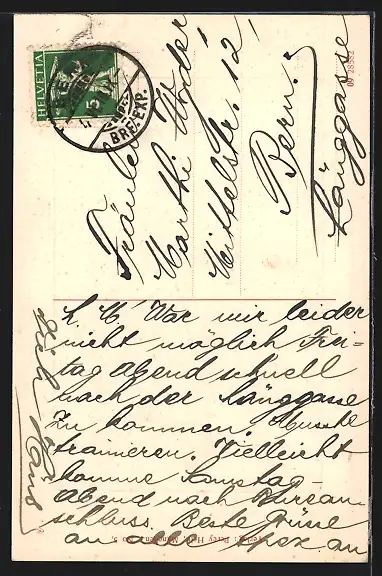 HELVETIA
5
BERN
BRF. EXP.
Fräulein
Marthi
Mittelstr. 12
Bern.
Länggasse
09 28582
L. M! War mir leider
nicht möglich Frei-
tag abend schnell
nach der Länggasse
zu kommen. Musste
trainieren. Vielleicht
komme Samstag-
abend nach Bureau-
schluss. Beste Grüsse
an alle
an
Dich Hans